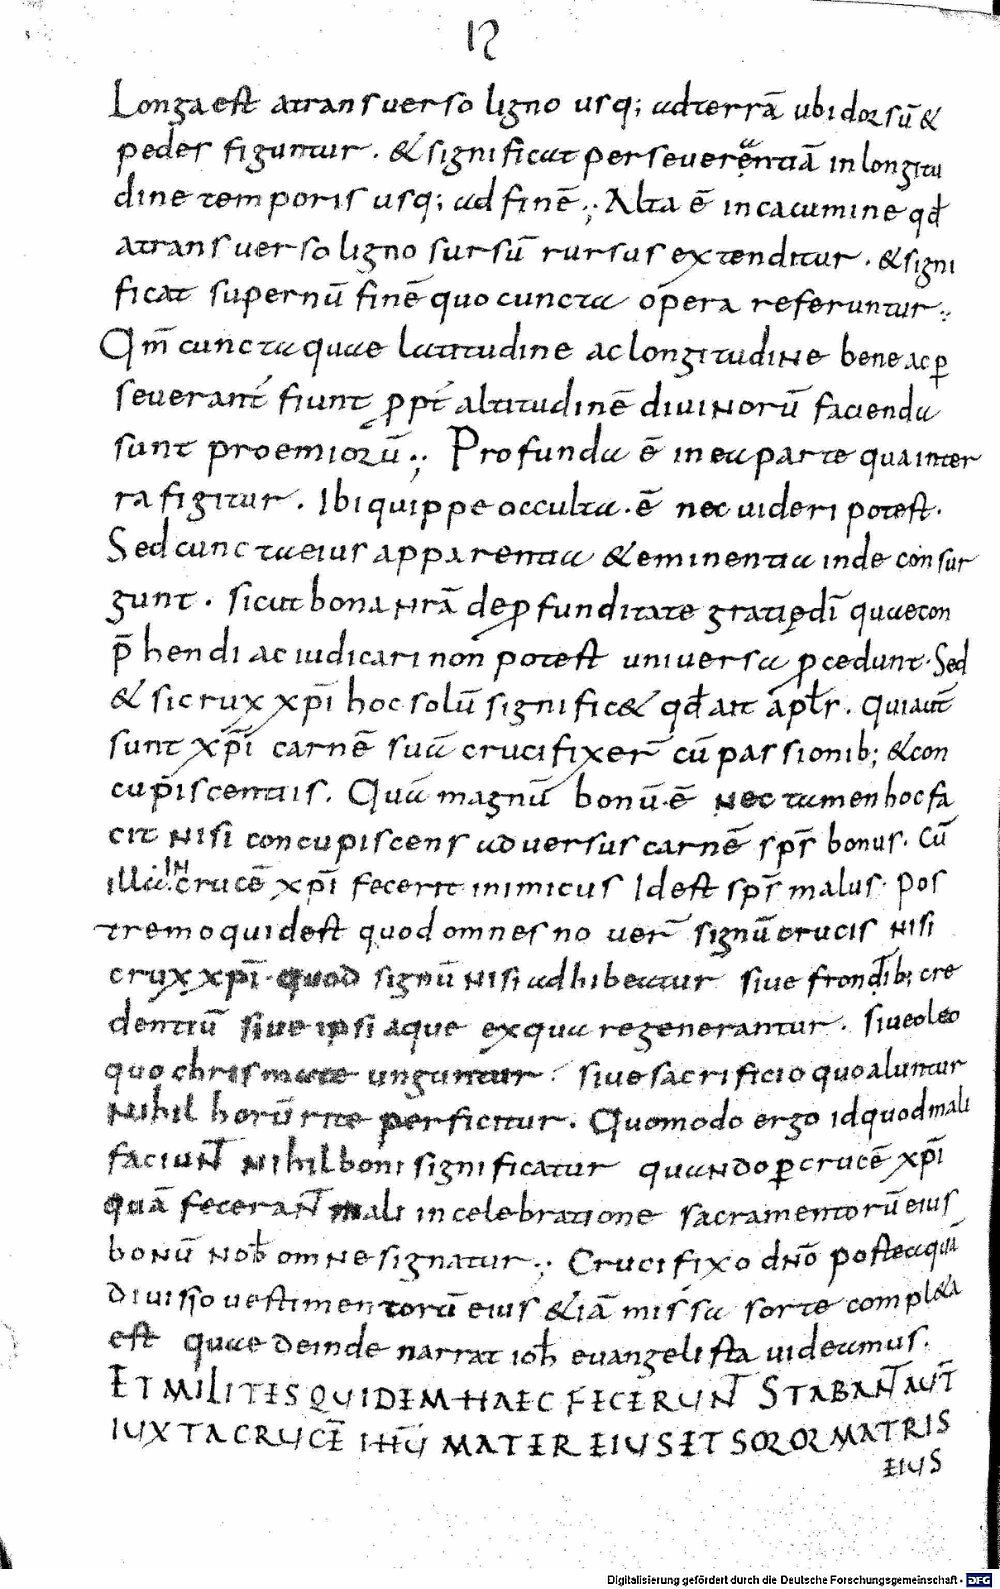 12
Longa est atransuerso ligno usq; adterrā ubi dorsū &
pedes figuntur. & significat perseuerentiā in longitu
dine temporis usq; ad finē:, Alta ē in cacumine qđ
atransuerso ligno sursū rursus extenditur. & signi
ficat supernū finē quo cuncta opera referuntur:,
Qm̄ cuncta quae latitudine ac longitudine bene ac ꝑ
seuerant́ fiunt ꝓpt́ altitudinē diuinorū facienda
sunt proemiorū:, Profunda ē in ea parte qua inter
ra figitur. Ibi quippe occulta. ē nec uideri potest.
Sed cuncta eius apparentia & eminentia inde consur
gunt. sicut bona nrā de ꝓfunditate gratię dī quae con
p̄hendi ac iudicari non potest uniuersa ꝓcedunt. Sed
& si crux xp̄i hoc solū signific& qđ ait apłs. Qui aut̄
sunt xp̄i carnē suā crucifixer̄ cū passionib; & con
cupiscentiis. Quā magnū bonū. ē nec tamen hoc fa
cit nisi concupiscens aduersus carnē sps̄ bonus. Cū
illa. IN
crucē xp̄i fecerit inimicus Id est sps̄ malus. Pos
tremo quid est quod omnes no uer̄ signū crucis nisi
crux xp̄i. quod signū nisi adhibeatur siue frontib; cre
dentiū siue ipsi aque ex qua regenerantur. siue oleo
quo chrismate unguntur. siue sacrificio quo aluntur
nihil horū rite perficitur. Quomodo ergo id quod mali
faciunt nihil boni significatur quando ꝑ crucē xp̄i
quā fecerant mali in celebratione sacramentorū eius
bonū nob̄ omne signatur:, Crucifixo dn̄o postea quā
diuisio uestimentorū eius & iā missa sorte compl&a
est quae deinde narrat ioh̄ euangelista uideamus.
ET MILITES QUIDEM HAEC FECERUNT STABANT AUT̄
IUXTA CRUCĒ IHŪ MATER EIUS ET SOROR MATRIS
EIUS
Digitalisierung gefördert durch die Deutsche Forschungsgemeinschaft - DFG